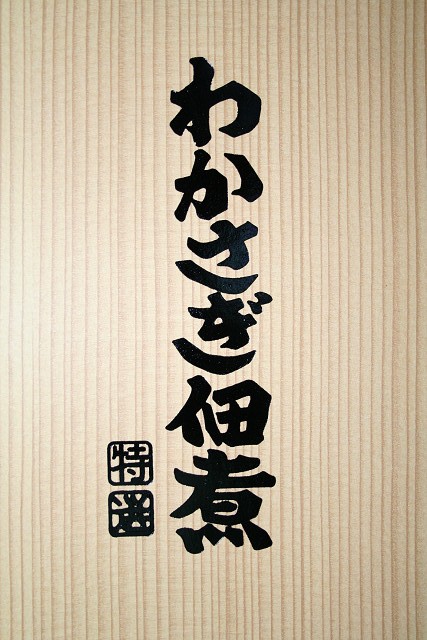 わかさぎ佃煮
特選